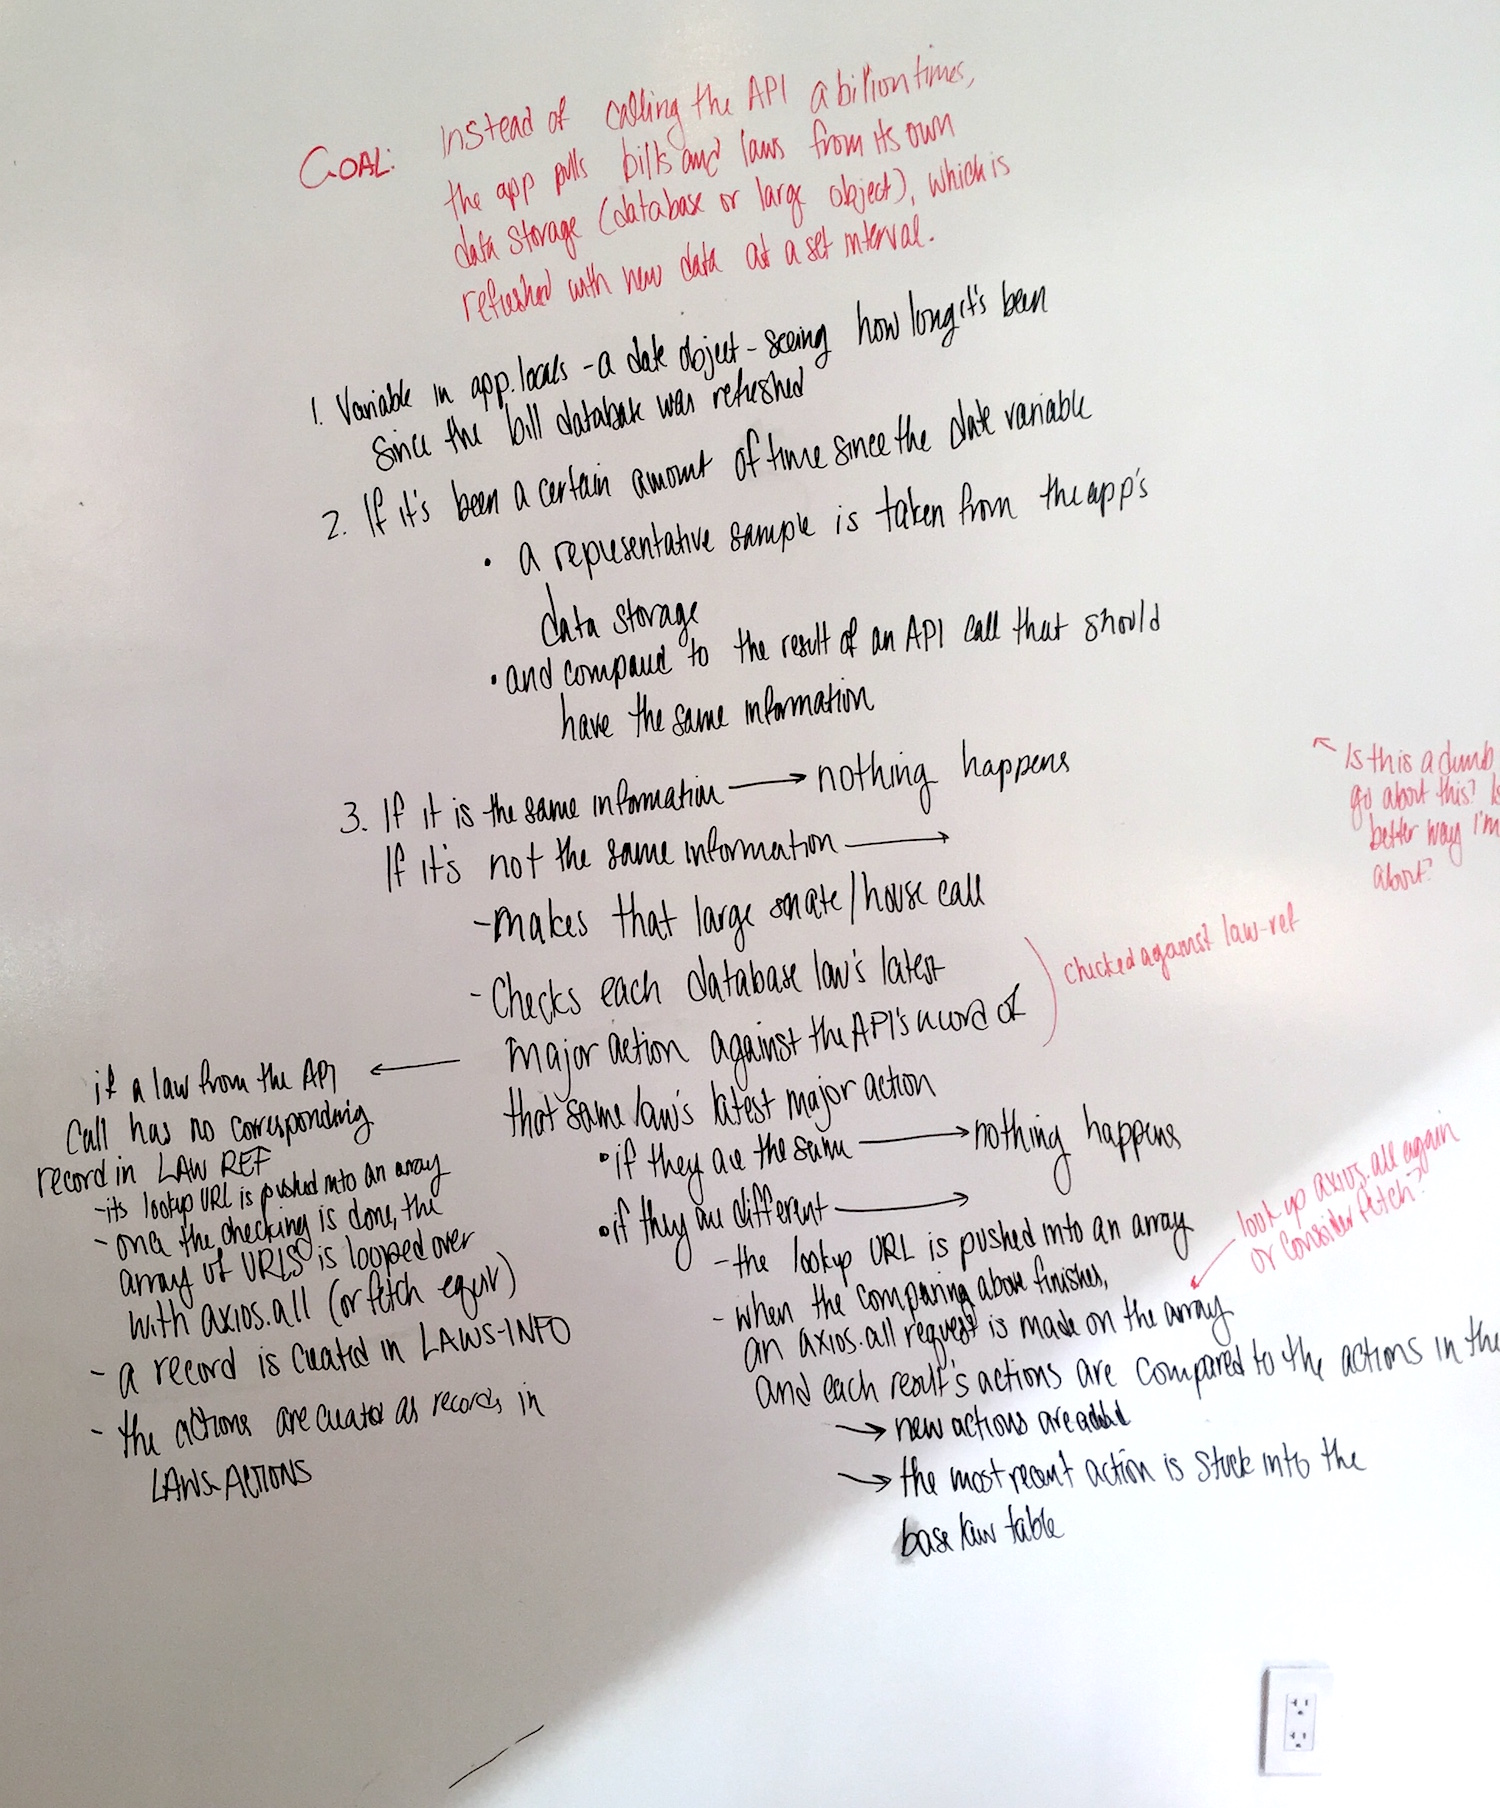 GOAL: Instead of calling the API a billion times,
the app pulls bills and laws from its own
data storage (database or large object), which is
refreshed with new data at a set interval.
1. Variable in app.locals - a date object - seeing how long it's been
since the bill database was refreshed
2. If it's been a certain amount of time since the date variable
• a representative sample is taken from the app's
data storage
• and compared to the result of an API call that should
have the same information
3. If it is the same information → nothing happens
If it's not the same information →
- makes that large senate/house call
- Checks each database law's latest
major action against the API's record of
that same law's latest major action
• if they are the same → nothing happens
• if they are different →
- the lookup URL is pushed into an array
- when the comparing above finishes,
an axios.all request is made on the array
and each result's actions are compared to the actions in the
→ new actions are added
→ the most recent action is stuck into the
base law table
← Is this a dumb
go about this? Is
better way I'm
about?
checked against law-ref
look up axios.all again
or consider fetch?
← if a law from the API
call has no corresponding
record in LAW REF
- its lookup URL is pushed into an array
- once the checking is done, the
array of URLS is looped over
with axios.all (or fetch equiv)
- a record is created in LAWS-INFO
- the actions are created as records in
LAWS-ACTIONS